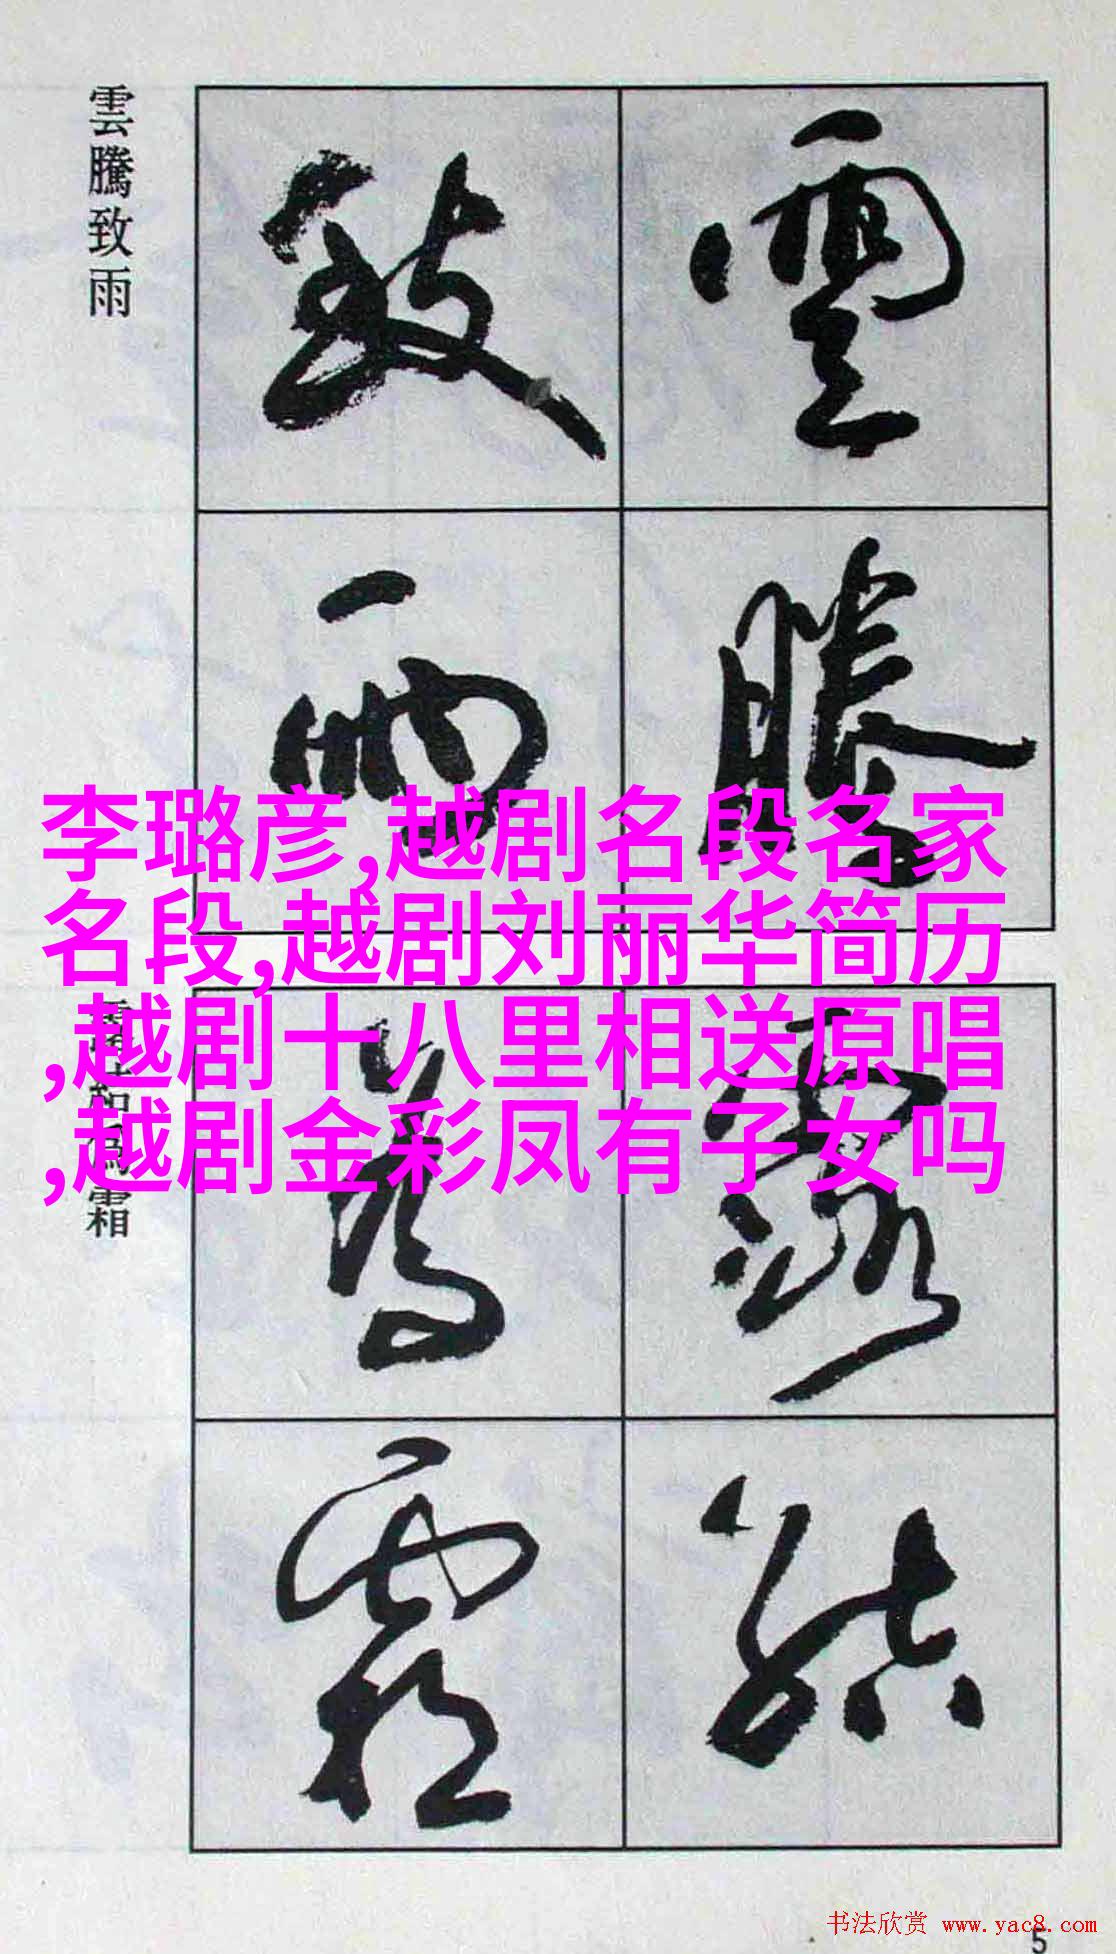 雲騰致雨
雲騰
致雨
李璐彦,越剧名段名家
名段,越剧刘丽华简历
,越剧十八里相送原唱
,越剧金彩凤有子女吗
露結為霜
露結
為霜
书法欣赏 www.yac8.com
5